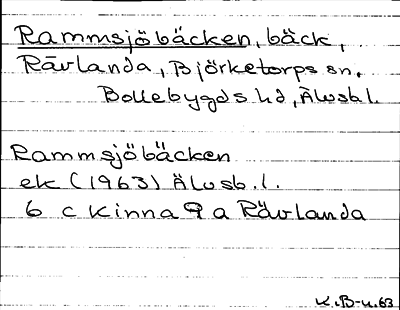 Rammsjöbäcken, bäck,
Rävlanda, Björketorps sn,
Bollebygds hd, Älvsb l.
Rammsjöbäcken
ek (1963) Älvsb. l.
6 c Kinna 9 a Rävlanda
K.B-n.63